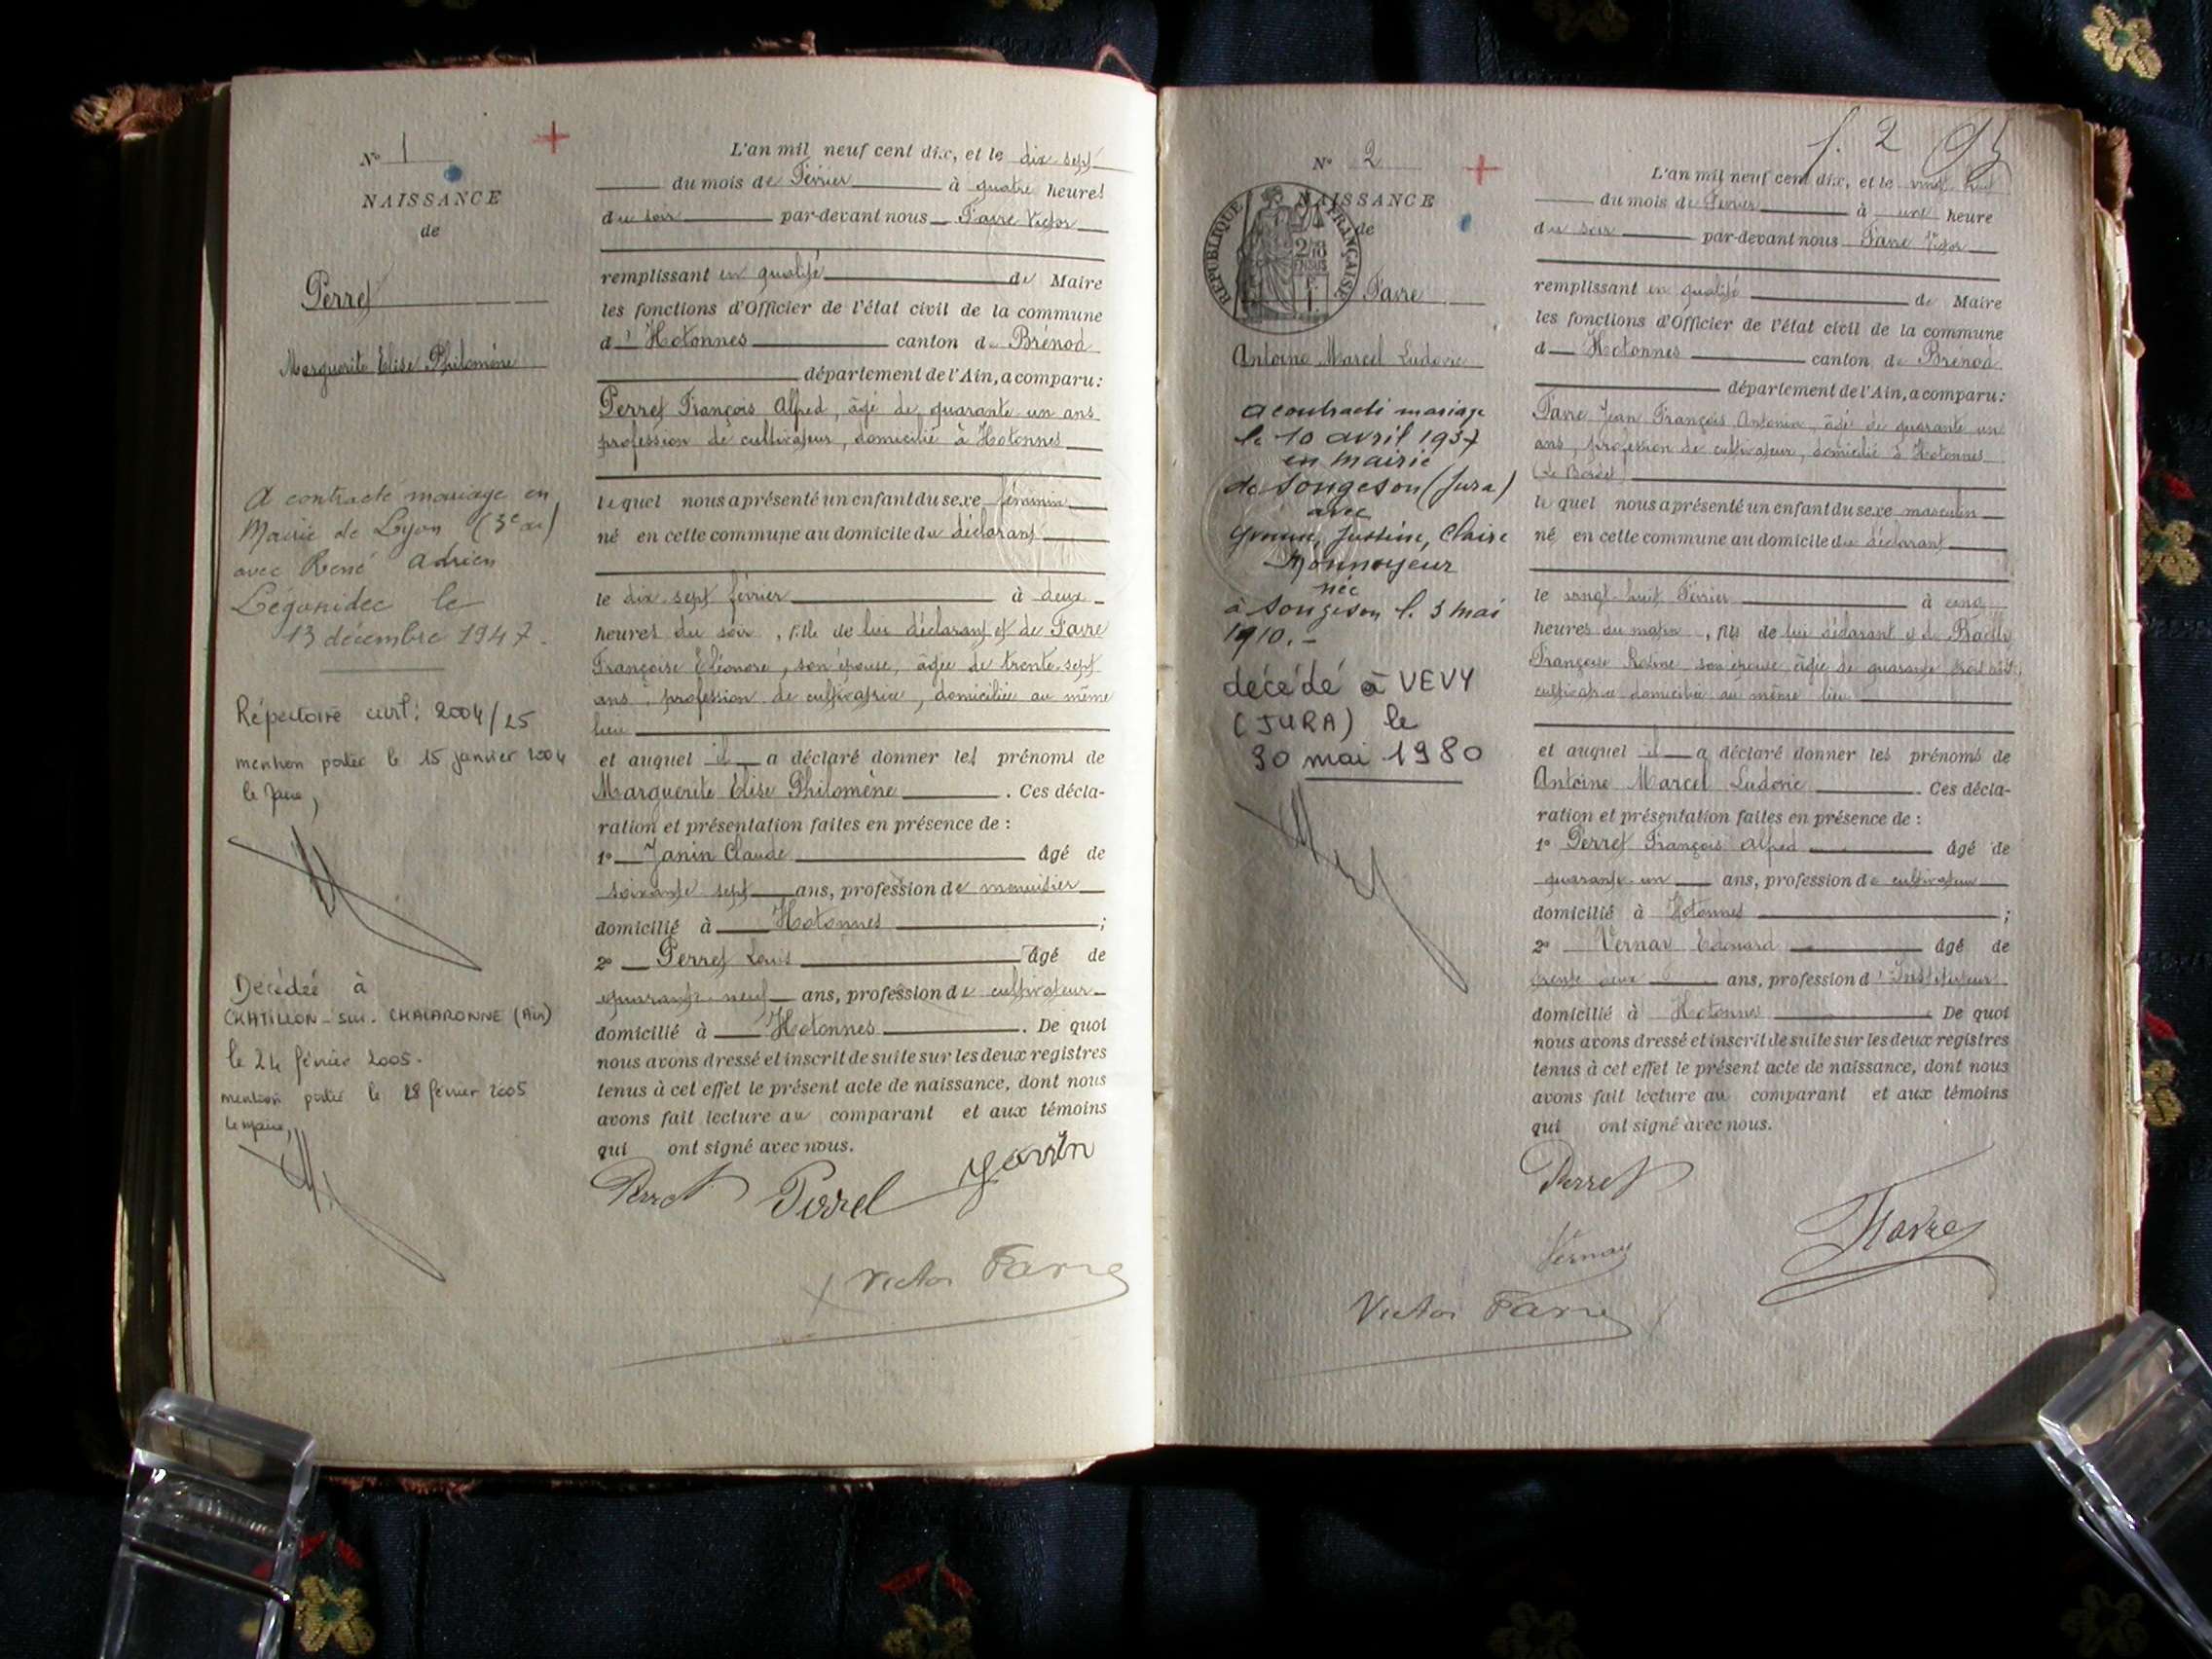 N° 1
NAISSANCE
de
Perret
Marguerite Elise Philomène
A contracté mariage en
Mairie de Lyon (3e ar)
avec René Adrien
Légonidec le
13 décembre 1947.
Répertoire civil: 2004/25
mention portée le 15 janvier 2004
le Maire,
Décédée à
CHATILLON-sur-CHALARONNE (Ain)
le 24 février 2005.
mention portée le 28 février 2005
le Maire,
L'an mil neuf cent dix, et le dix-sept
du mois de Février à quatre heures
du soir par-devant nous Favre Victor
remplissant en qualité de Maire
les fonctions d'Officier de l'état civil de la commune
d'Hotonnes canton de Brénod
département de l'Ain, a comparu:
Perret François Alfred, âgé de quarante un ans
profession de cultivateur, domicilié à Hotonnes
lequel nous a présenté un enfant du sexe féminin
né en cette commune au domicile du déclarant
le dix-sept février à deux
heures du soir, fille de lui déclarant et de Favre
Françoise Eléonore, son épouse, âgée de trente-sept
ans, profession de cultivatrice, domiciliée au même
lieu
et auquel il a déclaré donner les prénoms de
Marguerite Elise Philomène. Ces décla-
ration et présentation faites en présence de :
1° Janin Claude âgé de
soixante sept ans, profession de menuisier
domicilié à Hotonnes ;
2° Perret Louis âgé de
quarante-neuf ans, profession de cultivateur
domicilié à Hotonnes. De quoi
nous avons dressé et inscrit de suite sur les deux registres
tenus à cet effet le présent acte de naissance, dont nous
avons fait lecture au comparant et aux témoins
qui ont signé avec nous.
Perret Perret Janin
Victor Favre
f. 2
N° 2
NAISSANCE
de
RÉPUBLIQUE FRANÇAISE
Favre
Antoine Marcel Ludovic
a contracté mariage
le 10 avril 1937
en mairie
de Songeson (Jura)
avec
Justine, Claire
Monnoyeur
née
à Songeson le 3 mai
1910.-
décédé à VEVY
(JURA) le
30 mai 1980
L'an mil neuf cent dix, et le vingt huit
du mois de Février à une heure
du soir par-devant nous Favre Victor
remplissant en qualité de Maire
les fonctions d'Officier de l'état civil de la commune
d Hotonnes canton de Brénod
département de l'Ain, a comparu:
Favre Jean François Antonin, âgé de quarante un
ans, profession de cultivateur, domicilié à Hotonnes
lequel nous a présenté un enfant du sexe masculin
né en cette commune au domicile du déclarant
le vingt-huit Février à cinq
heures du matin, fils de lui déclarant et de
Françoise son épouse, âgée de quarante
cultivatrice domiciliée au même lieu
et auquel il a déclaré donner les prénoms de
Antoine Marcel Ludovic. Ces décla-
ration et présentation faites en présence de :
1° Perret François Alfred âgé de
quarante-un ans, profession de cultivateur
domicilié à Hotonnes ;
2° Vernay Edouard âgé de
trente deux ans, profession d'Instituteur
domicilié à Hotonnes. De quoi
nous avons dressé et inscrit de suite sur les deux registres
tenus à cet effet le présent acte de naissance, dont nous
avons fait lecture au comparant et aux témoins
qui ont signé avec nous.
Perret
Vernay
Favre
Victor Favre